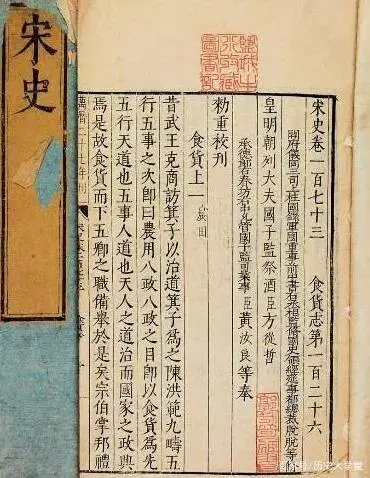 宋史
宋史卷一百七十三　食貨志第一百二十六
開府儀同三司上柱國錄軍國重事前中書右丞相監修國史領經筵事都總裁脫脫等
皇明朝列大夫國子監祭酒臣方從哲
承德郎右春坊右中允管國子監司業事臣黃汝良等奉
勑重校刊
食貨上一　農田
昔武王克商訪箕子以治道箕子爲之陳洪範九疇五
行五事之次即曰農用八政八政之目即以食貨爲先
五行天道也五事人道也天人之道治而國家之政興
焉是故食貨而下五卿之職備舉於是矣宗伯掌邦禮
萬曆二十七年刊
歷史大學堂